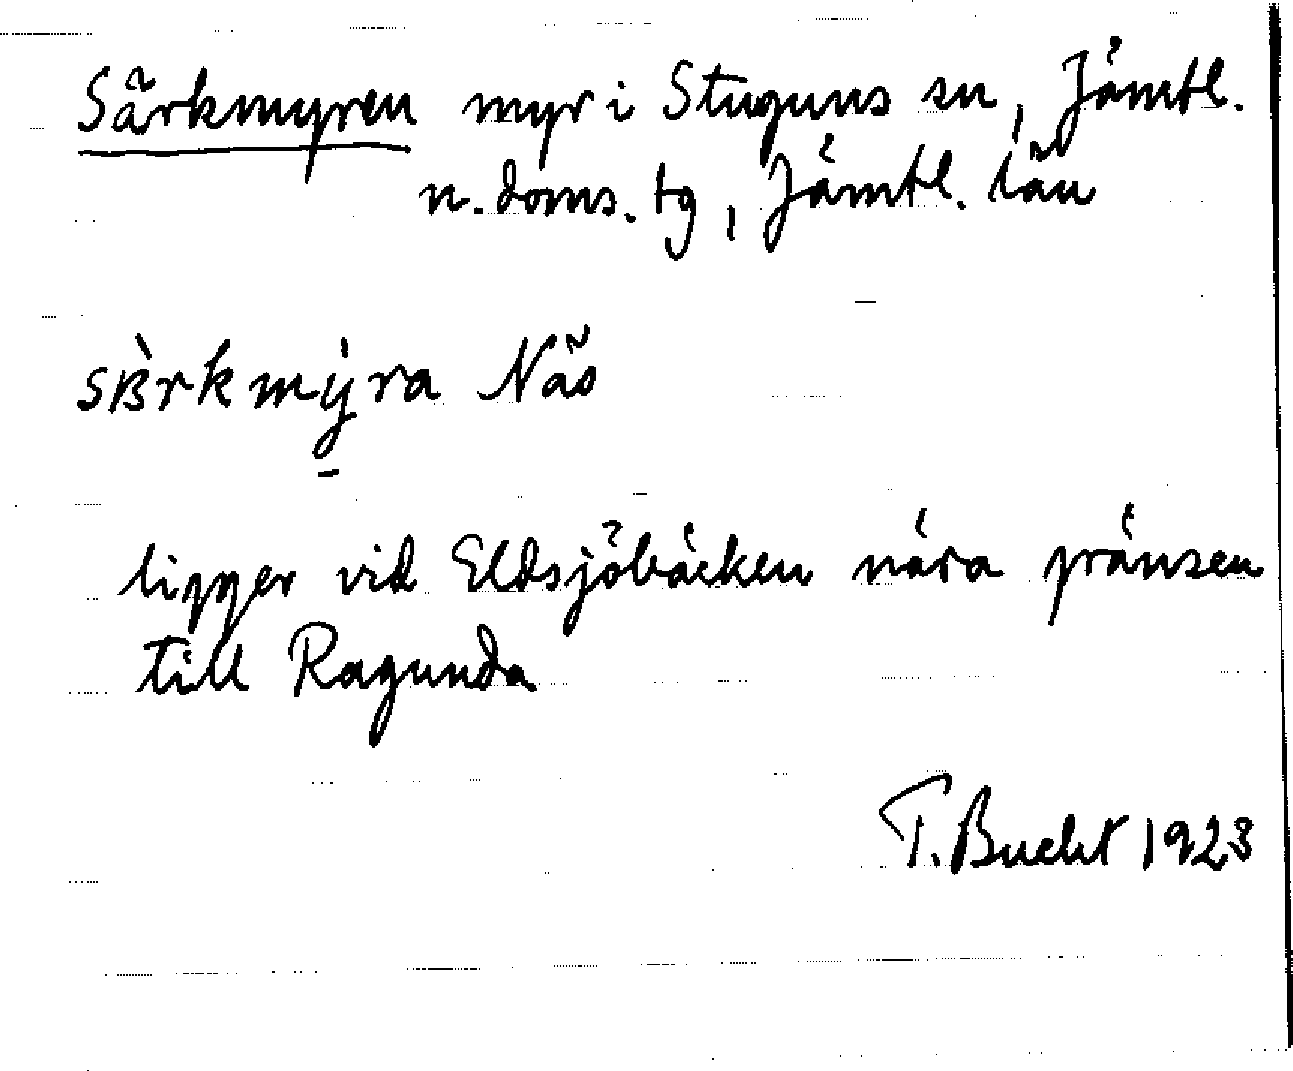 Särkmyren myr i Stuguns sn, Jämtl.
n. doms. tg, Jämtl. län
sᴃ̀rkmẏ̱ra Näs
ligger vid Eldsjöbäcken nära gränsen
till Ragunda
T. Bucht 1923